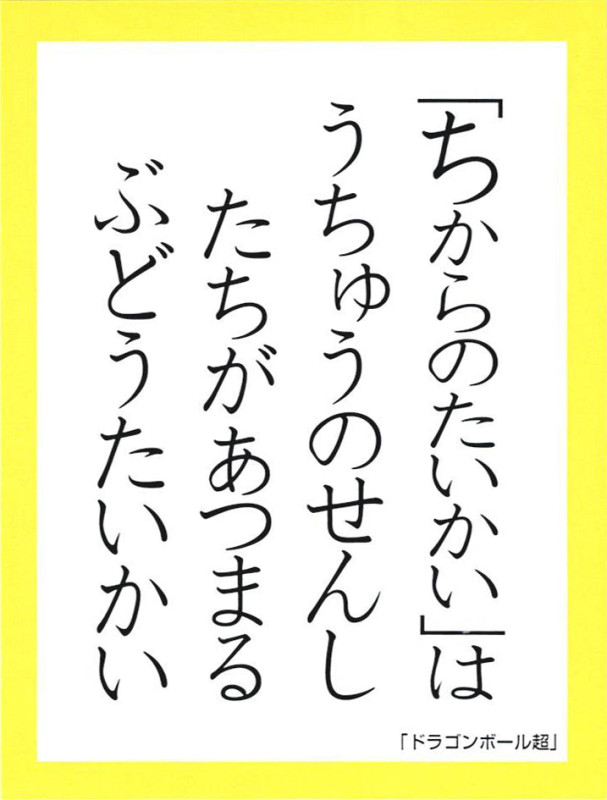 「ちからのたいかい」は
うちゅうのせんし
たちがあつまる
ぶどうたいかい
「ドラゴンボール超」